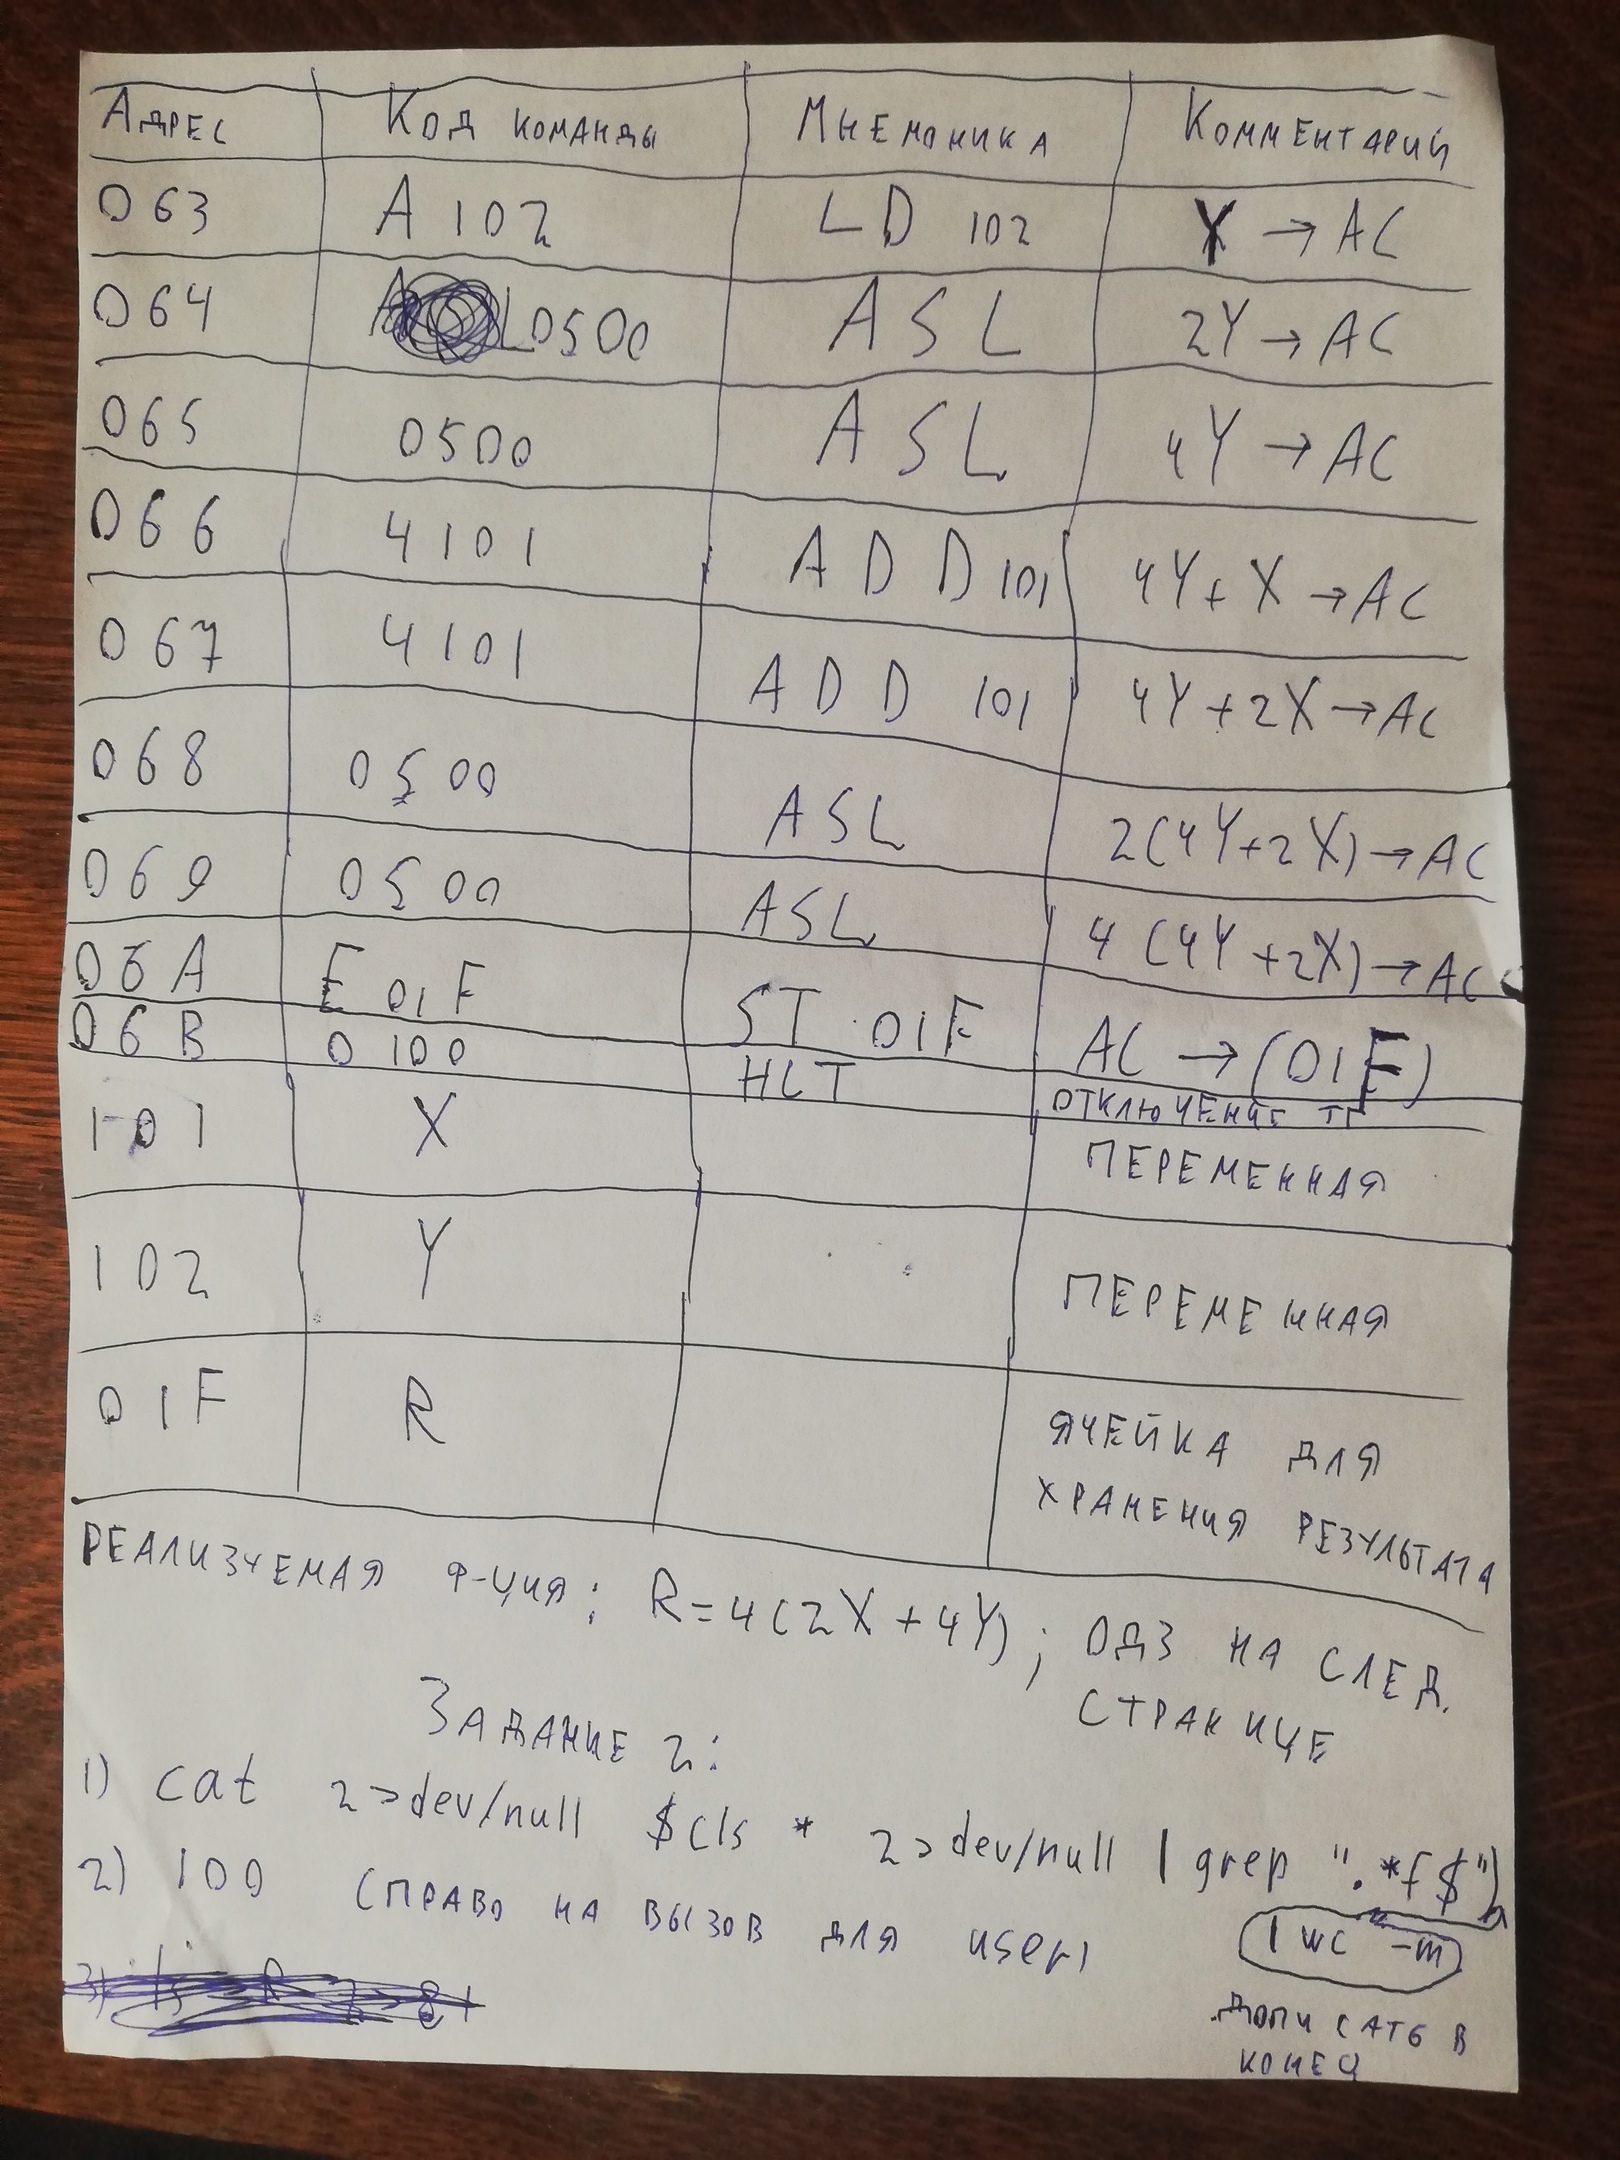 Адрес Код команды Мнемоника Комментарий
063 A102 LD 102 Y → AC
064 0500 ASL 2Y → AC
065 0500 ASL 4Y → AC
066 4101 ADD 101 4Y+X → AC
067 4101 ADD 101 4Y+2X → AC
068 0500 ASL 2(4Y+2X) → AC
069 0500 ASL 4(4Y+2X) → AC
06A E01F ST 01F AC → (01F)
06B 0100 HLT отключение ТГ
101 X переменная
102 Y переменная
01F R ячейка для
хранения результата
Реализуемая ф-ция: R=4(2X+4Y); ОДЗ на след.
странице
Задание 2:
1) cat 2>dev/null $(ls * 2>dev/null | grep ".*f$")
| wc -m
2) 100 (право на вызов для user)
дописать в
конец